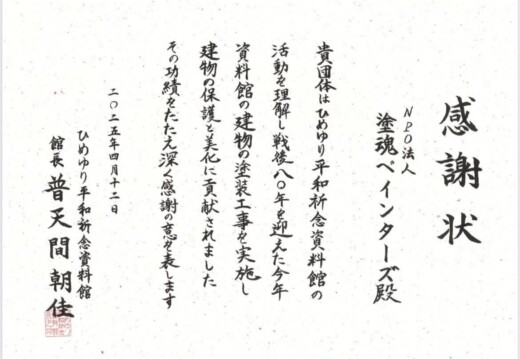 感謝状
NPO法人
塗魂ペインターズ殿
貴団体はひめゆり平和祈念資料館の
活動を理解し戦後八〇年を迎えた今年
資料館の建物の塗装工事を実施し
建物の保護と美化に貢献されました
その功績をたたえ深く感謝の意を表します
二〇二五年四月十二日
ひめゆり平和祈念資料館
館長 普天間朝佳